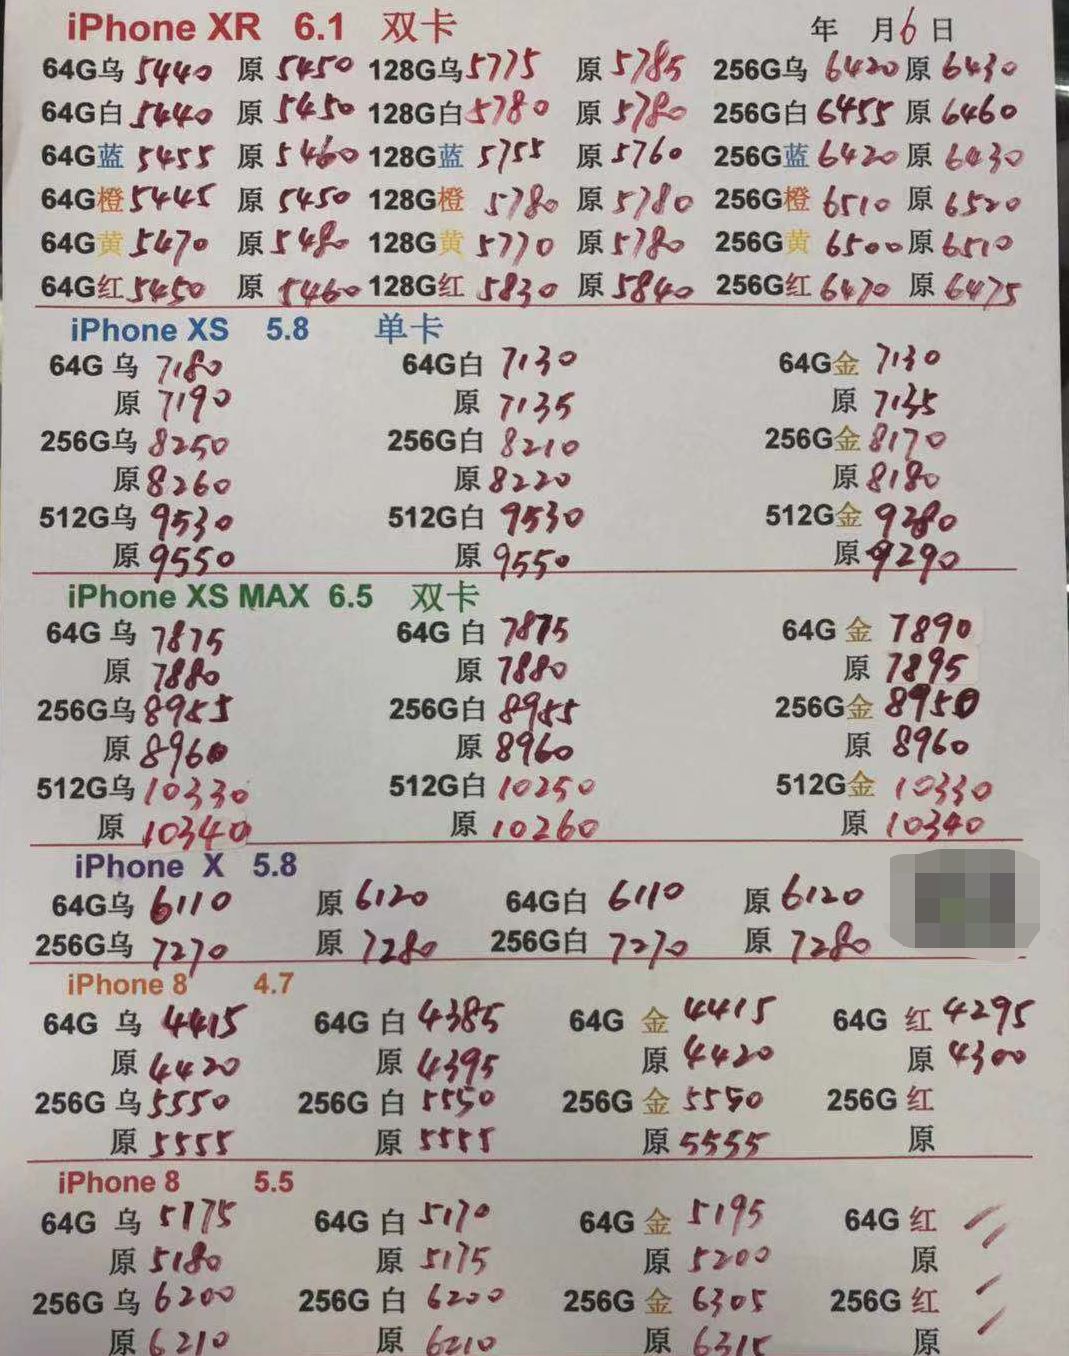 iPhone XR 6.1 双卡 年 月6日
64G乌 5440 原 5450 128G乌 5775 原 5785 256G乌 6420 原 6430
64G白 5440 原 5450 128G白 5780 原 5780 256G白 6455 原 6460
64G蓝 5455 原 5460 128G蓝 5755 原 5760 256G蓝 6420 原 6430
64G橙 5445 原 5450 128G橙 5780 原 5780 256G橙 6510 原 6520
64G黄 5470 原 5480 128G黄 5770 原 5780 256G黄 6500 原 6510
64G红 5450 原 5460 128G红 5830 原 5840 256G红 6470 原 6475
iPhone XS 5.8 单卡
64G 乌 7180 64G白 7130 64G金 7130
原 7190 原 7135 原 7135
256G乌 8250 256G白 8210 256G金 8170
原 8260 原 8220 原 8180
512G乌 9530 512G白 9530 512G金 9280
原 9550 原 9550 原 9290
iPhone XS MAX 6.5 双卡
64G 乌 7875 64G 白 7875 64G 金 7890
原 7880 原 7880 原 7895
256G乌 8955 256G白 8955 256G金 8950
原 8960 原 8960 原 8960
512G乌 10330 512G白 10250 512G金 10330
原 10340 原 10260 原 10340
iPhone X 5.8
64G乌 6110 原 6120 64G白 6110 原 6120
256G乌 7270 原 7280 256G白 7270 原 7280
iPhone 8 4.7
64G 乌 4415 64G 白 4385 64G 金 4415 64G 红 4295
原 4420 原 4395 原 4420 原 4300
256G 乌 5550 256G 白 5550 256G 金 5550 256G 红
原 5555 原 5555 原 5555 原
iPhone 8 5.5
64G 乌 5175 64G 白 5170 64G 金 5195 64G 红
原 5180 原 5175 原 5200 原
256G 乌 6200 256G 白 6200 256G 金 6305 256G 红
原 6210 原 6210 原 6315 原